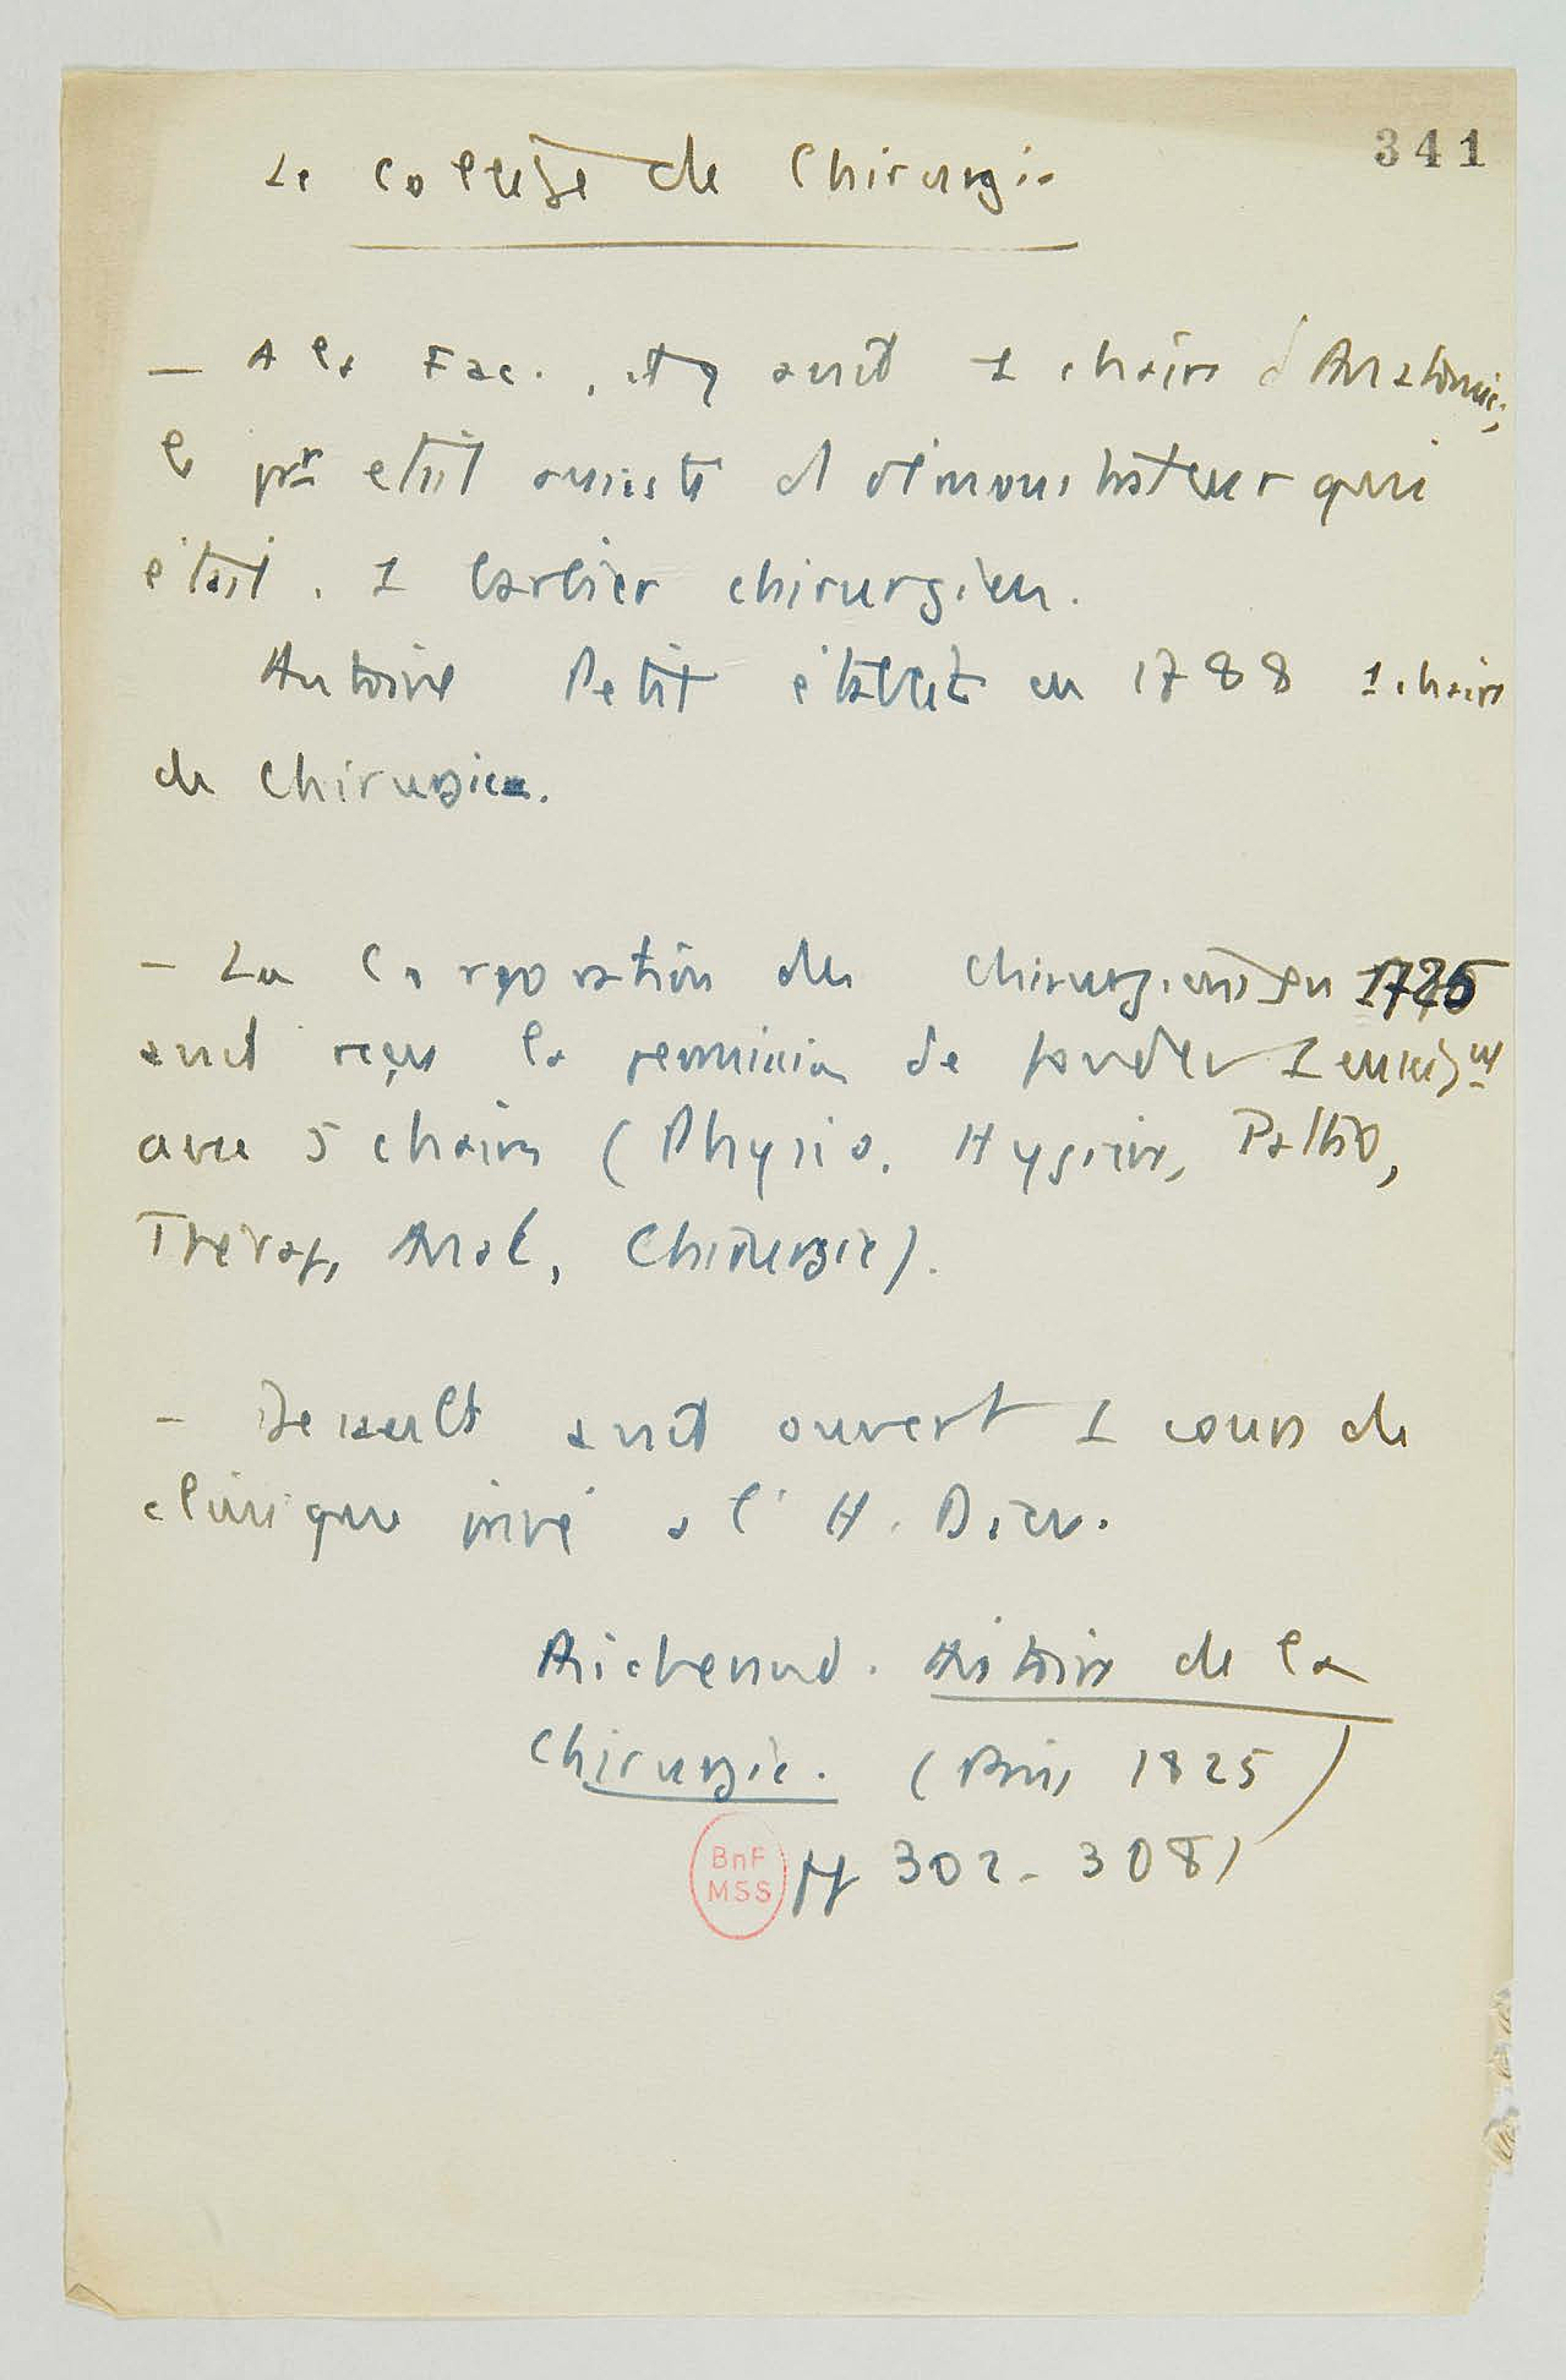 341
Le College de Chirurgie
— A la Fac., il y avait 1 chaire d'Anatomie;
le pr était assisté d démonstrateur qui
était 1 barbier chirurgien.
Antoine Petit établit en 1788 1 chaire
de Chirurgie.
— La Corporation des chirurgiens en
avait reçu la permission de fonder 1 enseigt
avec 5 chaires (Physio. Hygiène, Patho,
Thérap, Anat, Chirurgie).
— Desault avait ouvert 1 cours de
clinique privé à l'H. Dieu.
Richerand. Histoire de la
Chirurgie. (Paris 1825)
pp 302-308)
BnF
MSS